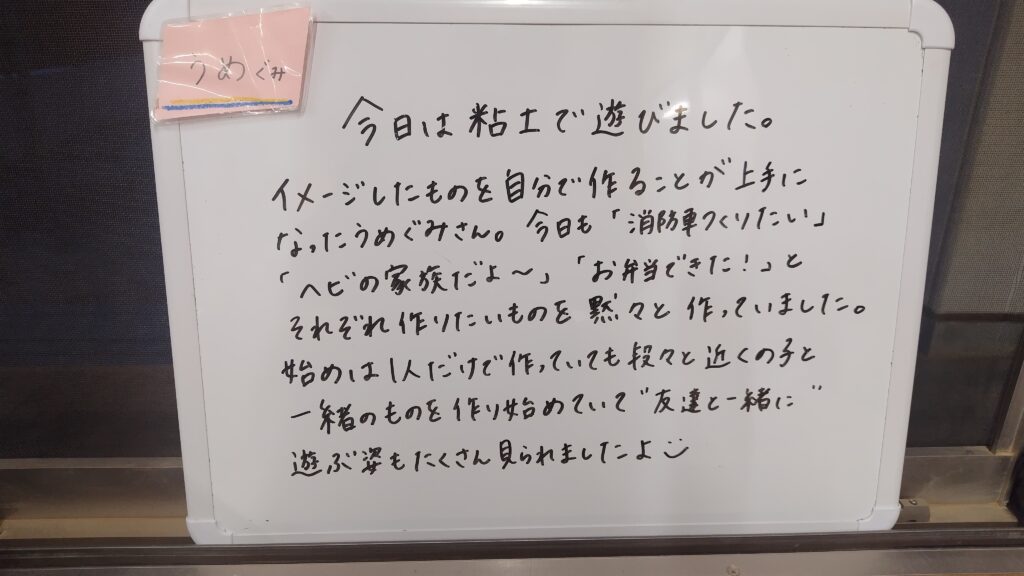 うめぐみ
今日は粘土で遊びました。
イメージしたものを自分で作ることが上手に
なったうめぐみさん。今日も「消防車つくりたい」
「ヘビの家族だよ〜」「お弁当できた!」と
それぞれ作りたいものを黙々と作っていました。
始めは1人だけで作っていても段々と近くの子と
一緒のものを作り始めていて"友達と一緒に"
遊ぶ姿もたくさん見られましたよ